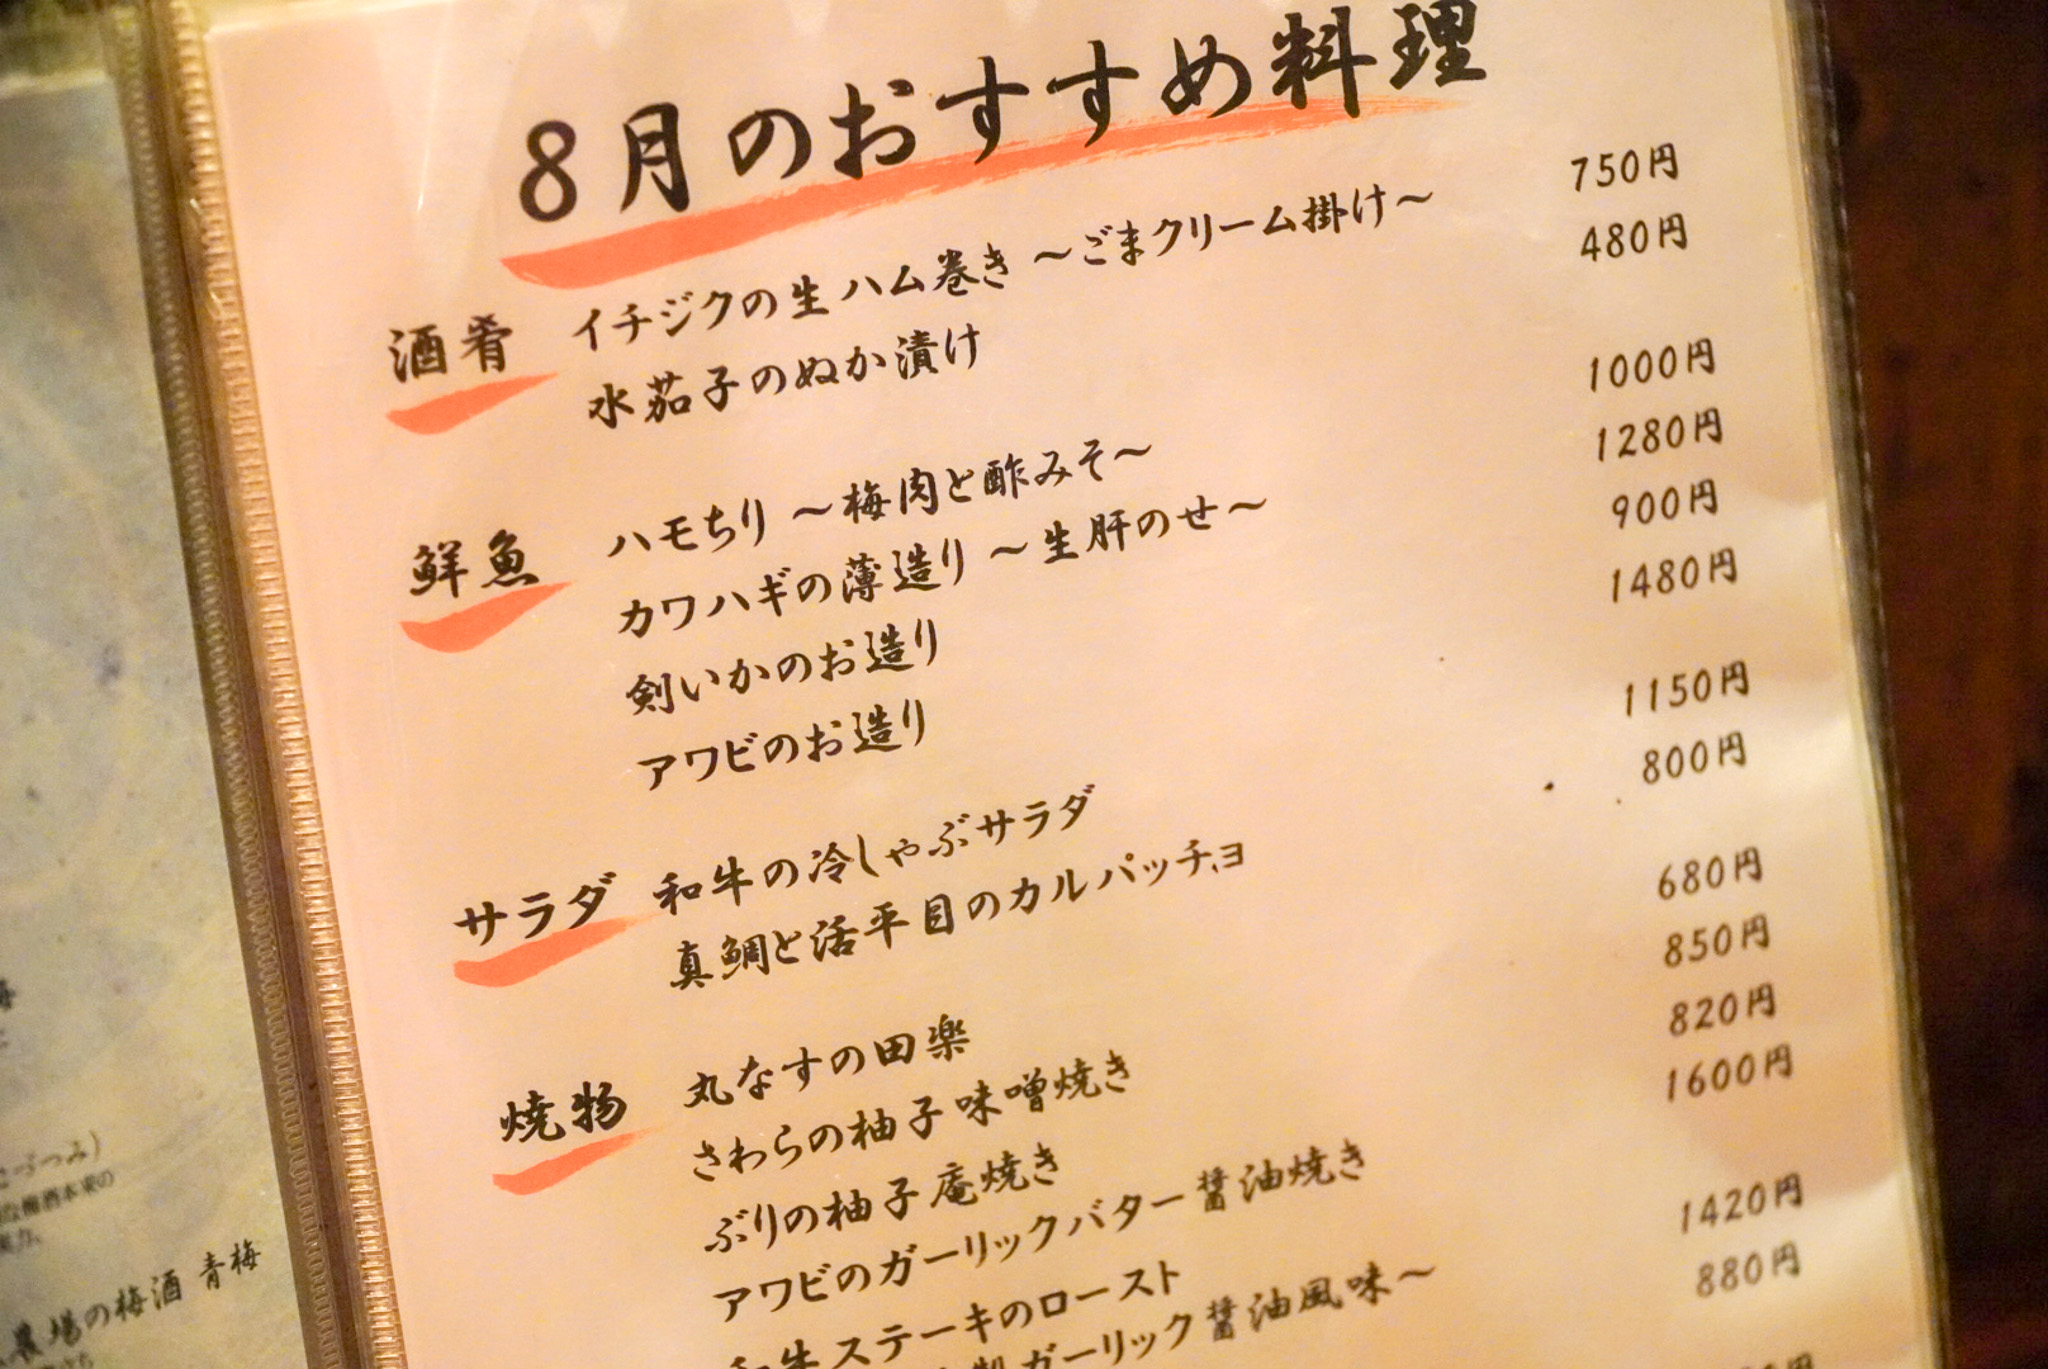 8月のおすすめ料理
酒肴 イチジクの生ハム巻き ～ごまクリーム掛け～ 750円
水茄子のぬか漬け 480円
鮮魚 ハモちり ～梅肉と酢みそ～ 1000円
カワハギの薄造り ～生肝のせ～ 1280円
剣いかのお造り 900円
アワビのお造り 1480円
サラダ 和牛の冷しゃぶサラダ 1150円
真鯛と活平目のカルパッチョ 800円
焼物 丸なすの田楽 680円
さわらの柚子味噌焼き 850円
ぶりの柚子庵焼き 820円
アワビのガーリックバター醤油焼き 1600円
和牛ステーキのロースト 1420円
ガーリック醤油風味～ 880円
づつみ)
梅酒本来の
農場の梅酒 青梅